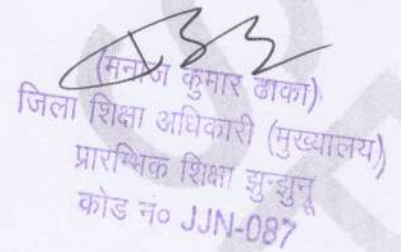 (मनोज कुमार ढाका)
जिला शिक्षा अधिकारी (मुख्यालय)
प्रारम्भिक शिक्षा झुन्झुनू
कोड नं० JJN-087